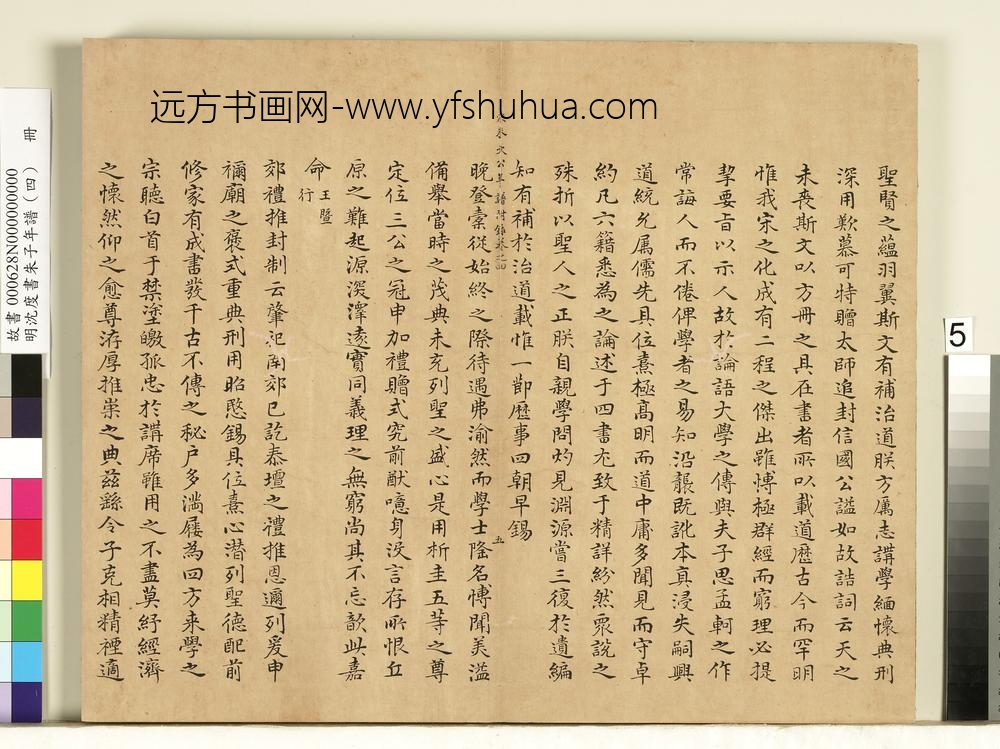 远方书画网-www.yfshuhua.com
聖賢之蘊羽翼斯文有補治道朕方厲志講學緬懷典刑
深用歎慕可特贈太師追封信國公謚如故誥詞云天之
未喪斯文以方冊之具在書者所以載道歷古今而罕明
惟我宋之化成有二程之傑出雖博極群經而窮理必提
挈要旨以示人故於論語大學之傳與夫子思孟軻之作
常誨人而不倦俾學者之易知沿襲既訛本真浸失嗣興
道統允属儒先具位熹極高明而道中庸多聞見而守卓
約凡六籍悉為之論述于四書尤致于精詳紛然衆說之
殊折以聖人之正朕自親學問灼見淵源嘗三復於遺編
知有補於治道載惟一節歷事四朝早錫
朱文公年譜附錄卷之四
五
晚登橐從始終之際待遇弗渝然而學士隆名博聞美謚
備舉當時之茂典未充列聖之盛心是用析圭五等之尊
定位三公之冠申加禮贈式究前猷噫身没言存所恨丘
原之難起源深澤遠實同義理之無窮尚其不忘歆此嘉
命 王曁行
郊禮推封制云肇祀南郊已訖泰壇之禮推恩邇列爰申
禰廟之褒式重典刑用昭愍錫具位熹心潜列聖德配前
修家有成書發千古不傳之秘户多満屨為四方来學之
宗聽白首于禁塗皦孤忠於講席雖用之不盡莫紓經濟
之懷然仰之愈尊洊厚推崇之典茲繇令子克相精禋適
故書 000628N000000000
明沈度書朱子年譜（四） 冊
5